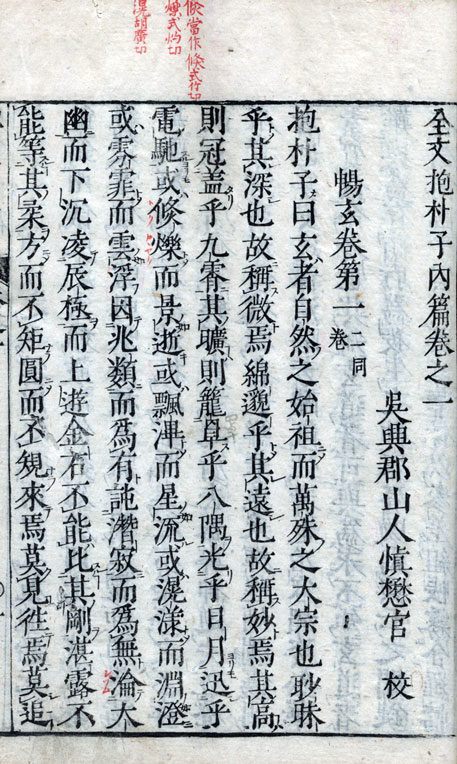 倏當作儵式竹切
爍式灼切
滉胡廣切
全文抱朴子內篇卷之一
吳興郡山人慎懋官 校
暢玄卷第一 二同卷
抱朴子曰玄者自然之始祖而萬殊之大宗也眇昧
乎其深也故稱微焉綿邈乎其遠也故稱妙焉其高
則冠盖乎九霄其曠則籠罩乎八隅光乎日月迅乎
電馳或倏爍而景逝或飄滭而星流或滉漾而淵澄
或雰霏而雲浮因兆類而爲有託潛寂而爲無淪大
幽而下沉凌辰極而上遊金石不能比其剛湛露不
能等其柔方而不矩圓而不規來焉莫見徃焉莫追